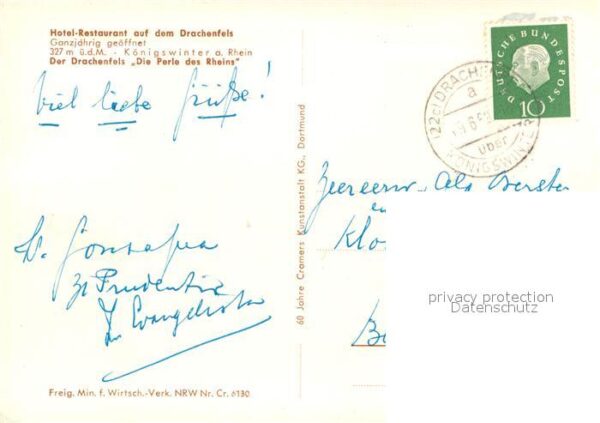 Hotel-Restaurant auf dem Drachenfels
Ganzjährig geöffnet
327 m ü.d.M. - Königswinter a. Rhein
Der Drachenfels „Die Perle des Rheins"
Viel liebe Grüße!
Sr. Gonzaga
Sr Prudentia
Sr Evangelista
Freig. Min. f. Wirtsch.-Verk. NRW Nr. Cr. 6130
60 Jahre Cramers Kunstanstalt KG., Dortmund
DEUTSCHE BUNDESPOST
10
(22c) DRACH
a
über
KÖNIGSWINTER
Klo
privacy protection
Datenschutz